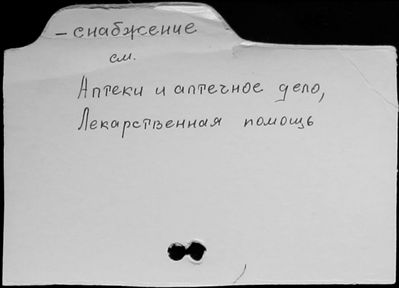 – снабжение
см.
Аптеки и аптечное дело,
Лекарственная помощь